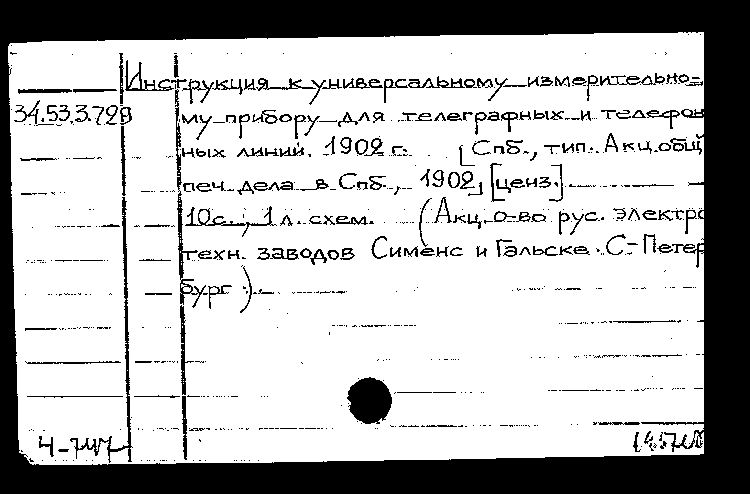 Инструкция к универсальному измерительно-
34.53.3.729 му прибору для телеграфных и телефон
ных линий. 1902 г. [Спб., тип. Акц. общ
печ. дела в Спб., 1902, [ценз.]
10с.; 1 л. схем. (Акц. о-во рус. электро
техн. заводов Сименс и Гальске. С-Петер
бург).